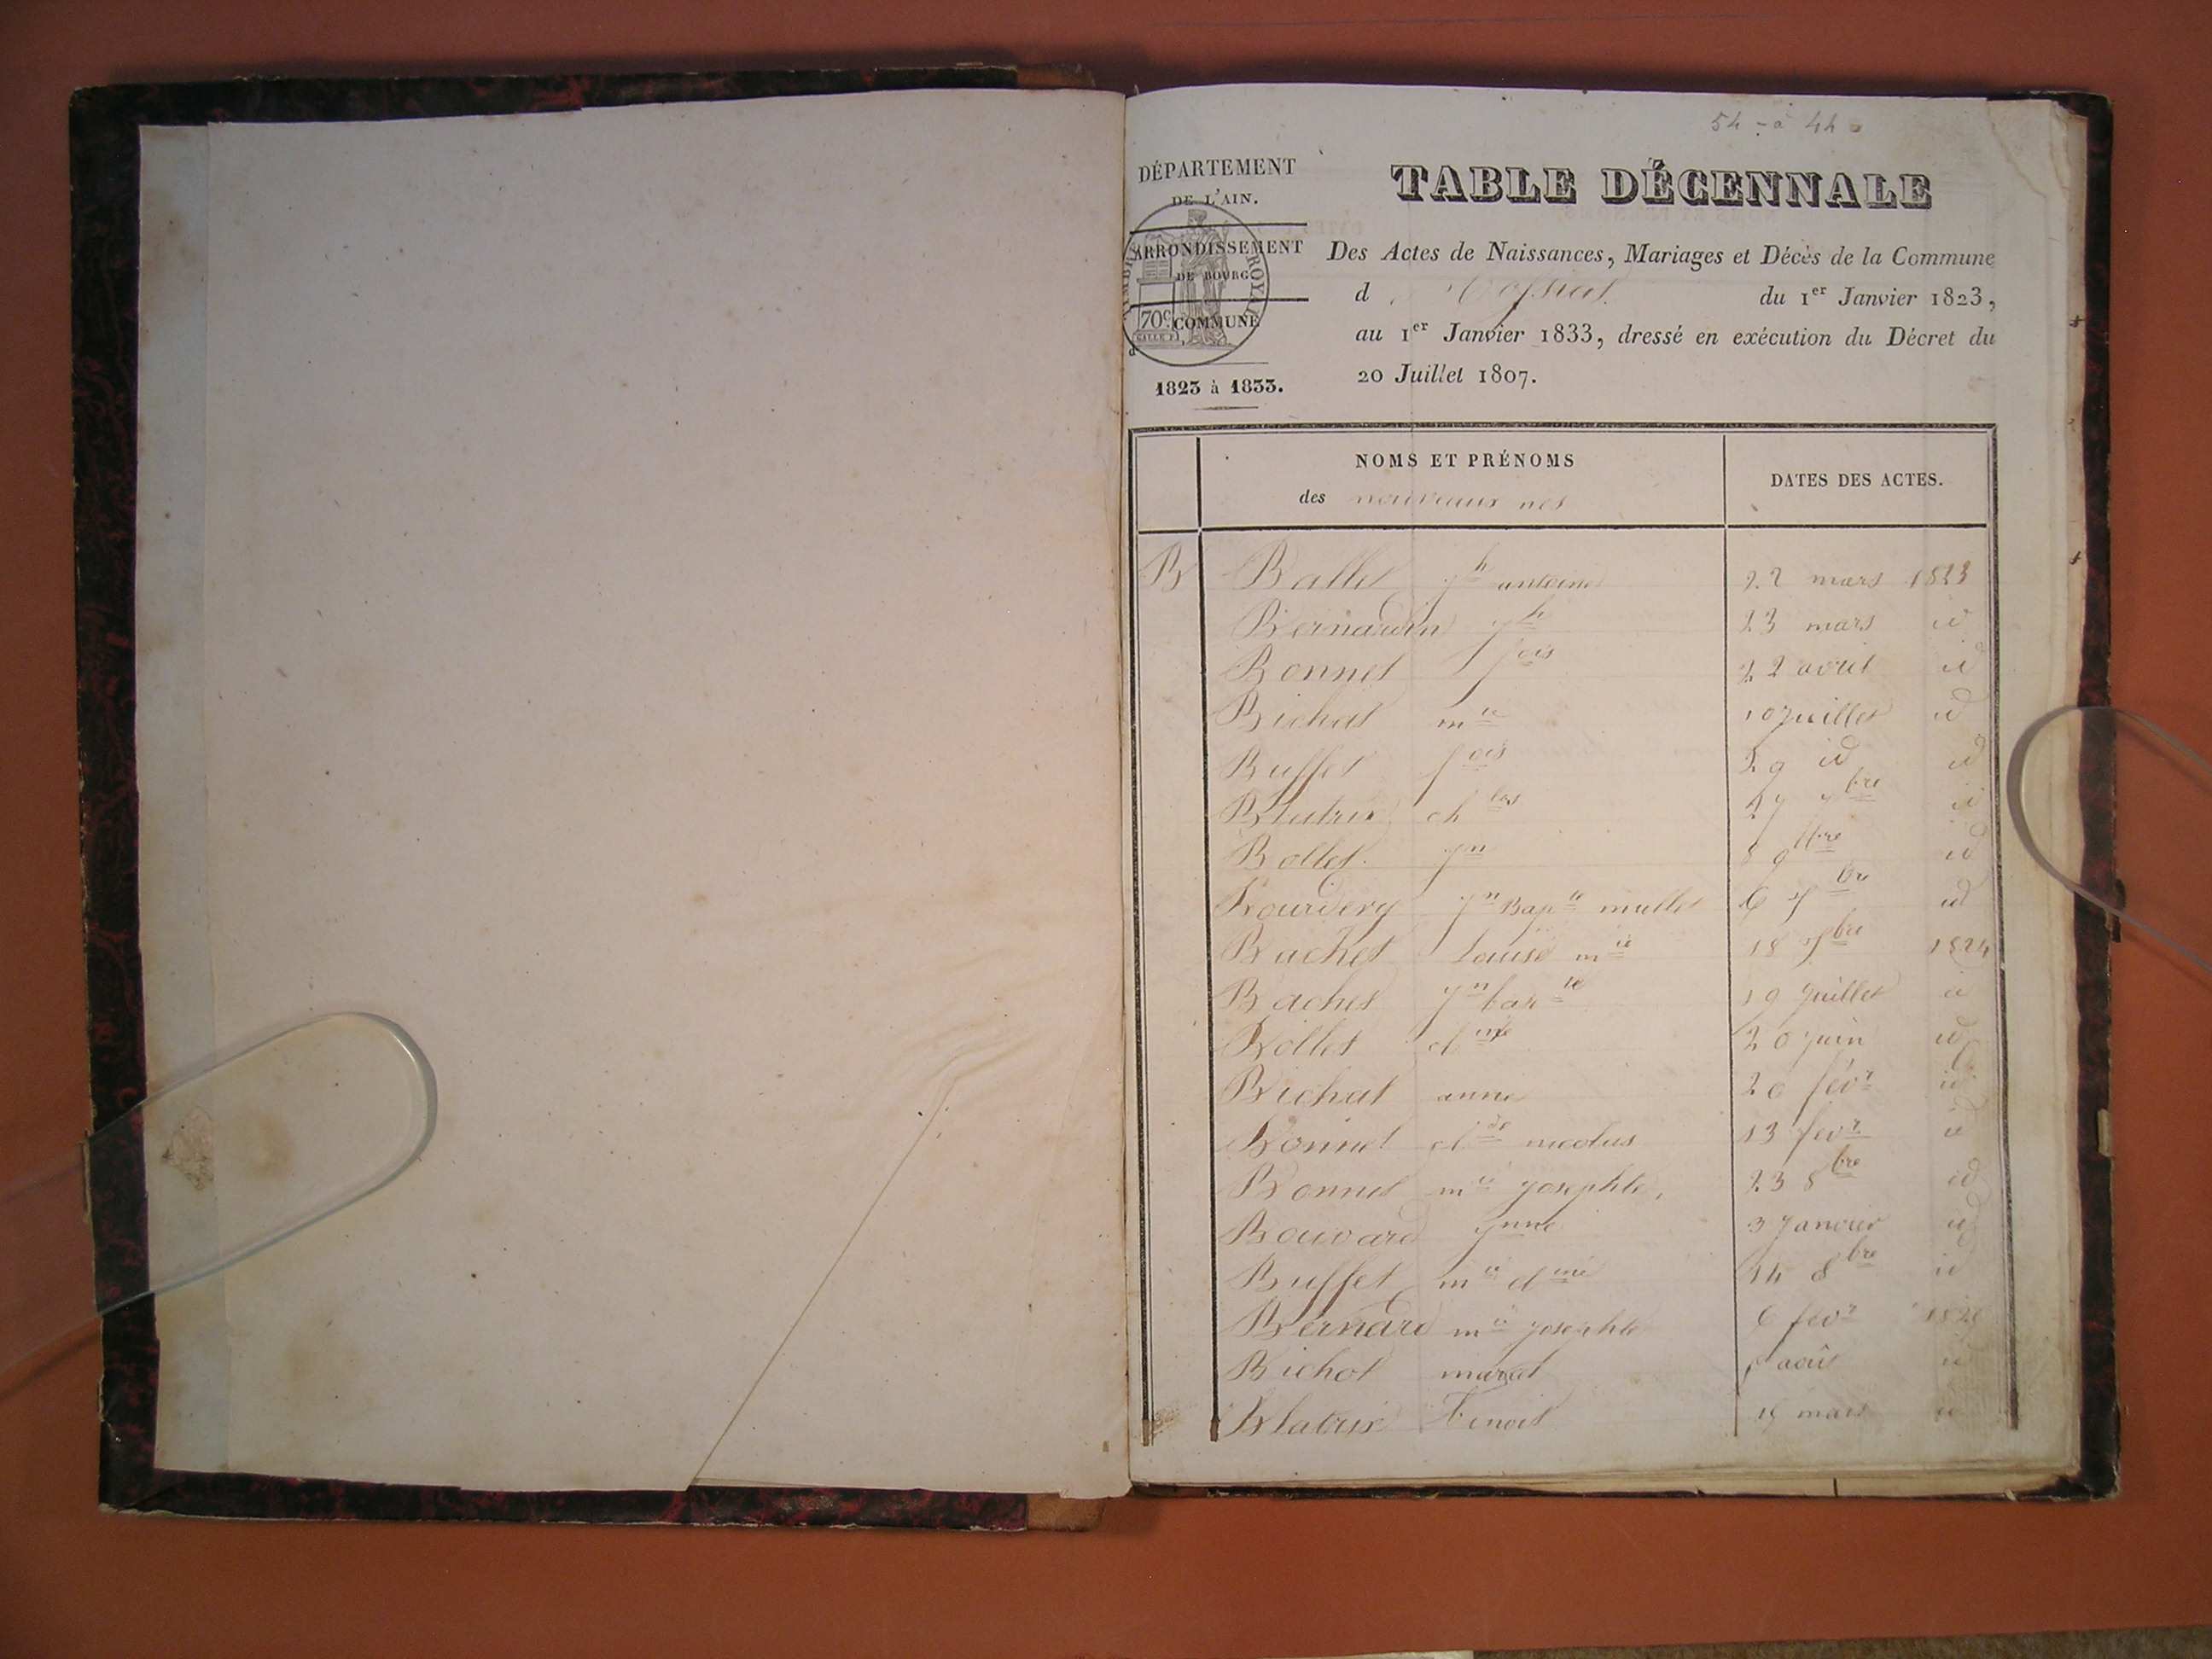 54 - à 44
DÉPARTEMENT
DE L'AIN.
ARRONDISSEMENT
DE BOURG
COMMUNE
d
TIMBRE ROYAL
70c
1823 à 1833.
TABLE DÉCENNALE
Des Actes de Naissances, Mariages et Décès de la Commune
d du 1er Janvier 1823,
au 1er Janvier 1833, dressé en exécution du Décret du
20 Juillet 1807.
NOMS ET PRÉNOMS
des nouveaux nés
DATES DES ACTES.
B Ballet jh antoine 22 mars 1823
Bernardin jh 23 mars id
Bonnet fois 22 avril id
Bichat mie 10 juillet id
Buffet fois 29 id id
Blatrix chles 27 7bre id
Bollet jn 8 9bre id
Bourdery jn Bapte 6 bre id
Bachet Louise mie 18 bre 1824
Bachet jn bapte 19 juillet id
Bollet cl 20 juin id
Bichat anne 26 févr id
Bonnet clde nicolas 13 fevr id
Bonnet mie josephte 23 8bre id
Bouvard jnne 3 janvier id
Buffet mie cline 14 8bre id
Bernard mie josephte 6 fevr
Bichot août id
Blatrix Benoit 15 mars id